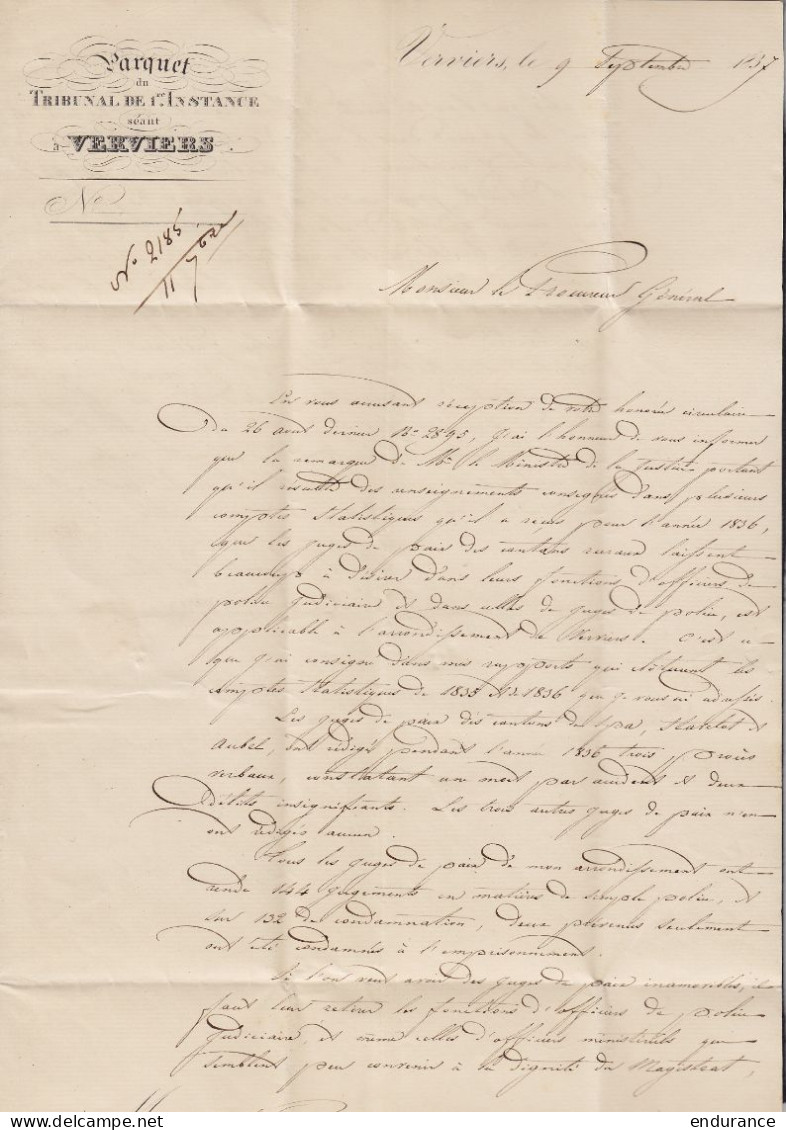 Parquet
du
TRIBUNAL DE 1re INSTANCE
séant
à VERVIERS.
No
No 2185
11 7bre
Verviers, le 9 Septembre 1837
Monsieur le Procureur Général
En vous accusant réception de votre honorée circulaire
du 26 aout dernier No 2895, j'ai l'honneur de vous informer
que la remarque de Mr le Ministre de la Justice portant
qu'il résulte des renseignements consignés dans plusieurs
comptes statistiques qu'il a reçus pour l'année 1836,
que les juges de paix des cantons ruraux laissent
beaucoup à désirer dans leurs fonctions d'officiers de
police judiciaire et dans celles de juges de police, est
applicable à l'arrondissement de Verviers. C'est ce
que j'ai consigné dans mes rapports qui clôturent les
comptes statistiques de 1835 et de 1836 que je vous ai adressés.
Les juges de paix des cantons de Spa, Stavelot et
Aubel, ont rédigé pendant l'année 1836 trois procès
verbaux, constatant un mort par accident et deux
délits insignifiants. Les trois autres juges de paix n'en
ont rédigés aucun.
Tous les juges de paix de mon arrondissement ont
rendu 144 jugements en matière de simple police, et
sur 132 de condamnation, deux prévenus seulement
ont été condamnés à l'emprisonnement.
Si l'on veut avoir des juges de paix inamovibles, il
faut leur retirer les fonctions d'officiers de police
judiciaire, et même celles d'officiers ministériels qui
semblent peu convenir à la dignité du Magistrat,
endurance